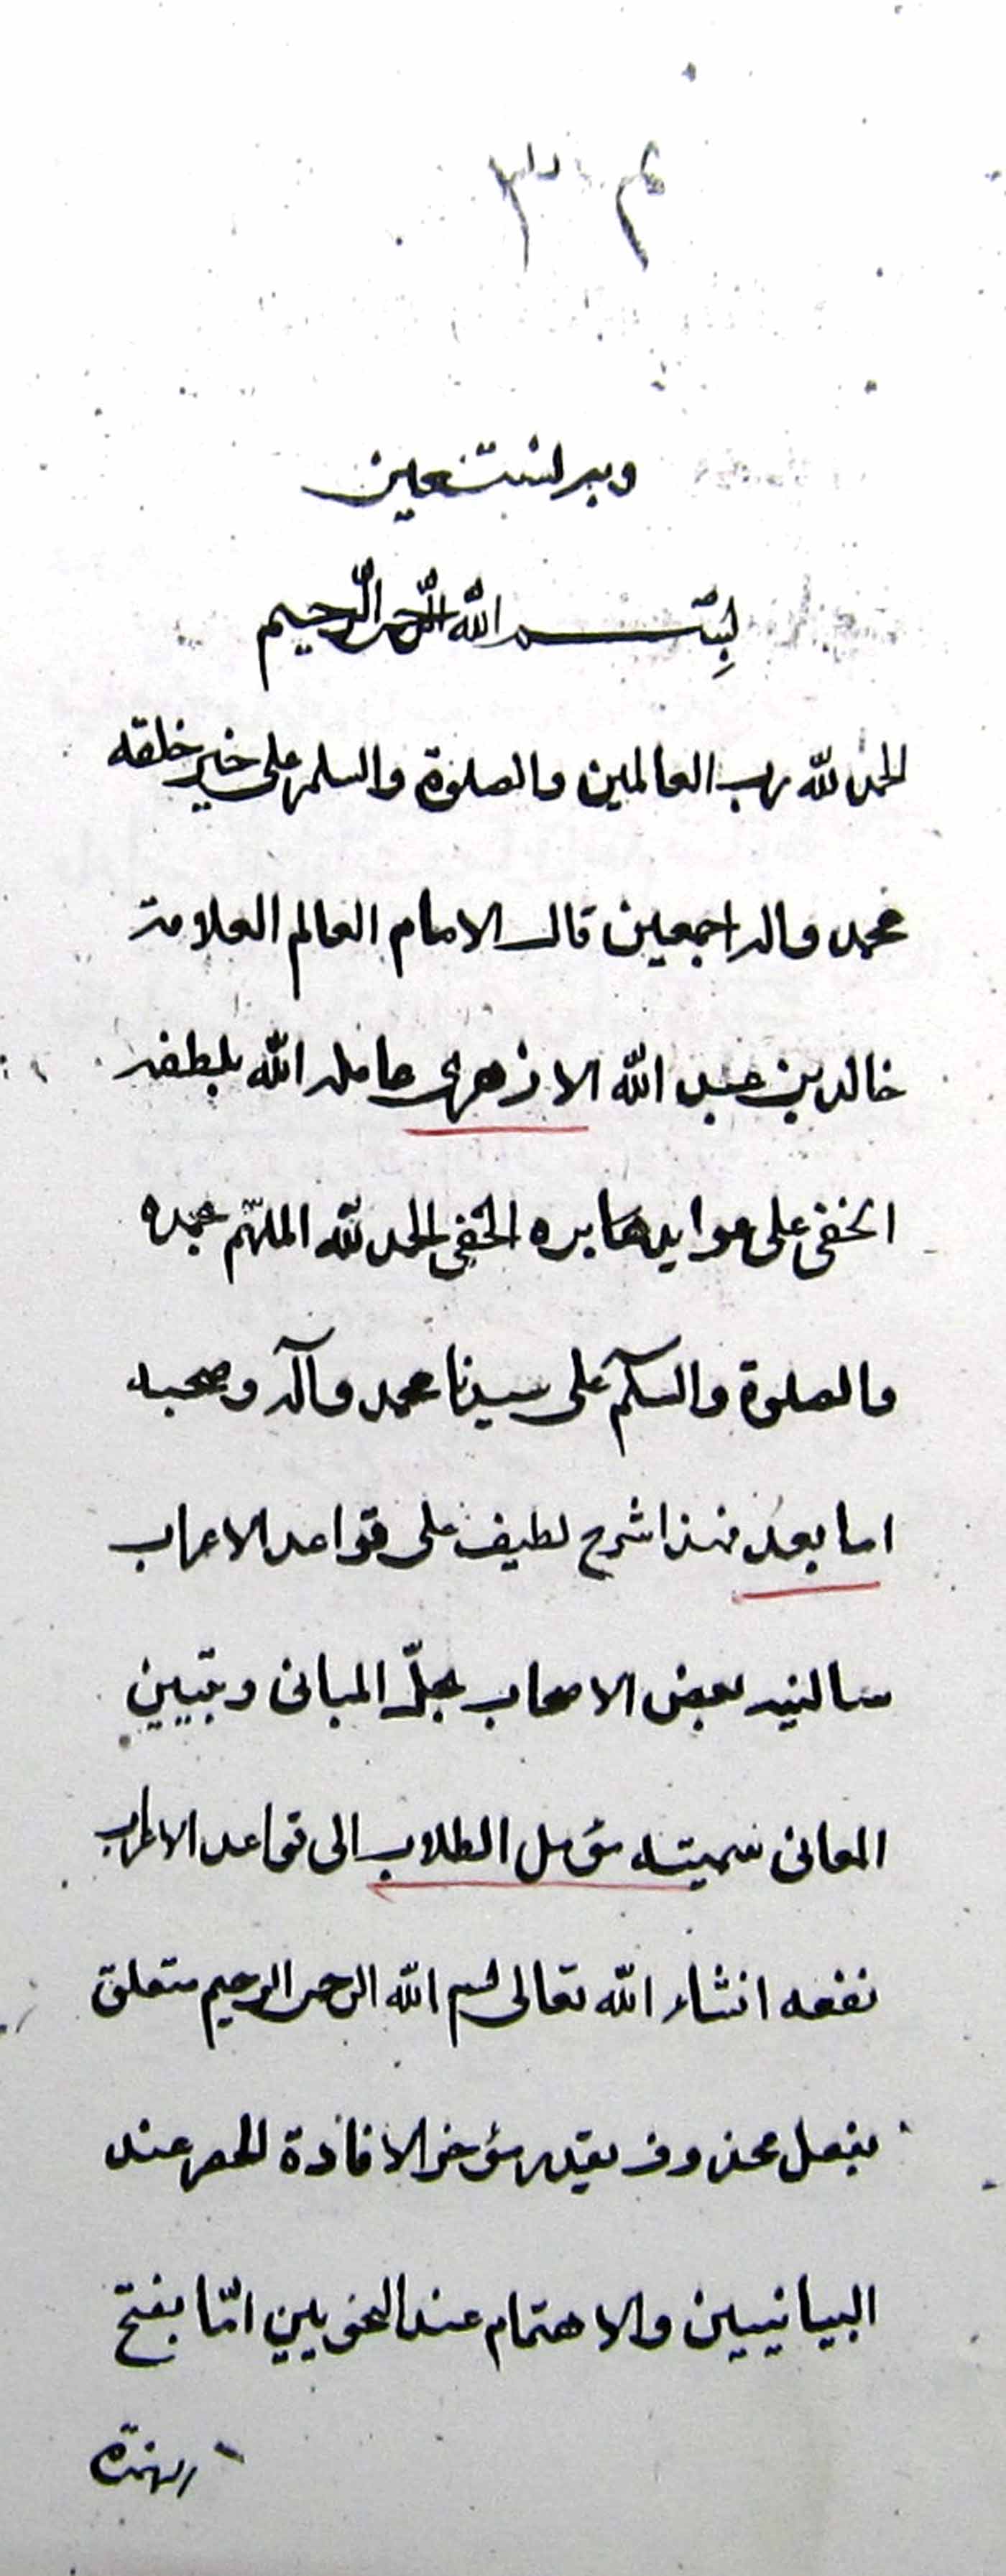 وبه نستعين
بسم الله الرحمن الرحيم
الحمد لله رب العالمين والصلوة والسلم على خير خلقه
محمد واله اجمعين قال الامام العالم العلامة
خالد بن عبد الله الازهرى عامله الله بلطفه
الخفى على عوايد بره الحفى الحمد لله الملهم بحمده
والصلوة والسلم على سيدنا محمد وآله وصحبه
اما بعد فهذا شرح لطيف على قواعد الاعراب
سالنيه بعض الاصحاب بحلّ المبانى وتبيين
المعانى سميته مؤمل الطلاب الى قواعد الاعراب
نفعه انشاء الله تعالى بسم الله الرحمن الرحيم متعلق
بفعل محذوف يقدر مؤخر الافادة الحصر عند
البيانيين والاهتمام عند النحويين امّا بفتح
الهمزة